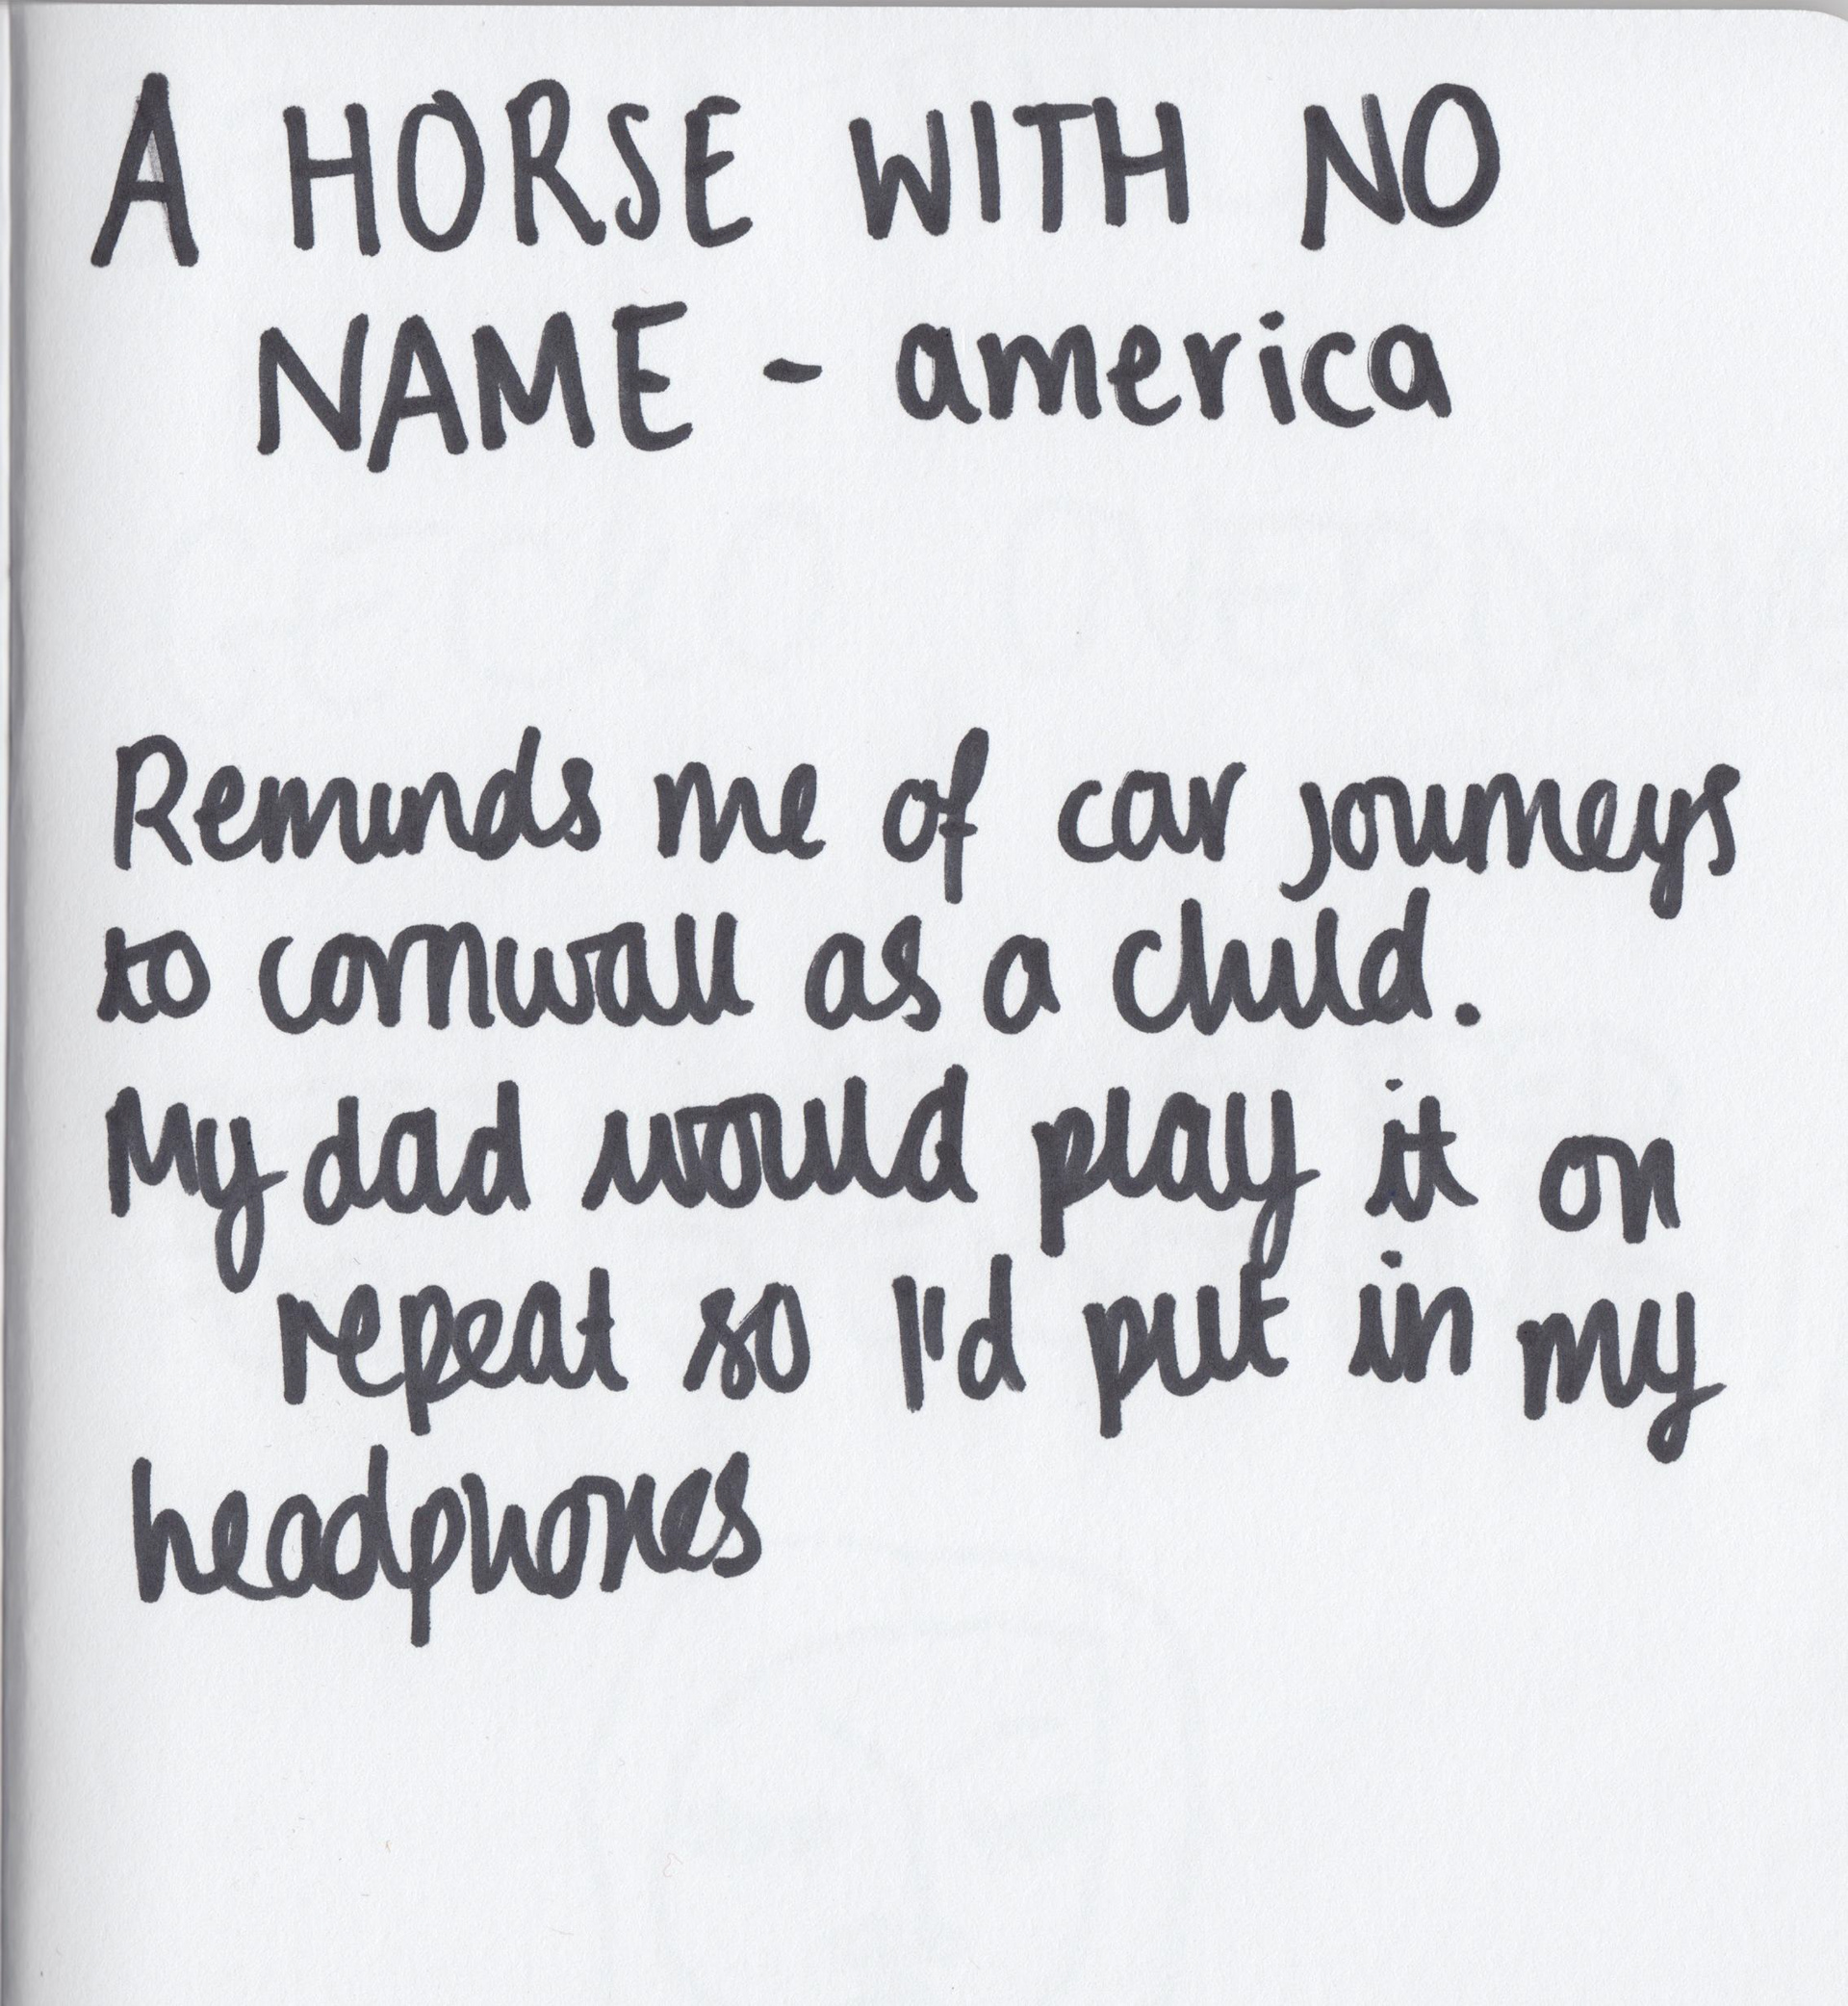 A HORSE WITH NO
NAME - america
Reminds me of car journeys
to cornwall as a child.
My dad would play it on
repeat so I'd put in my
headphones